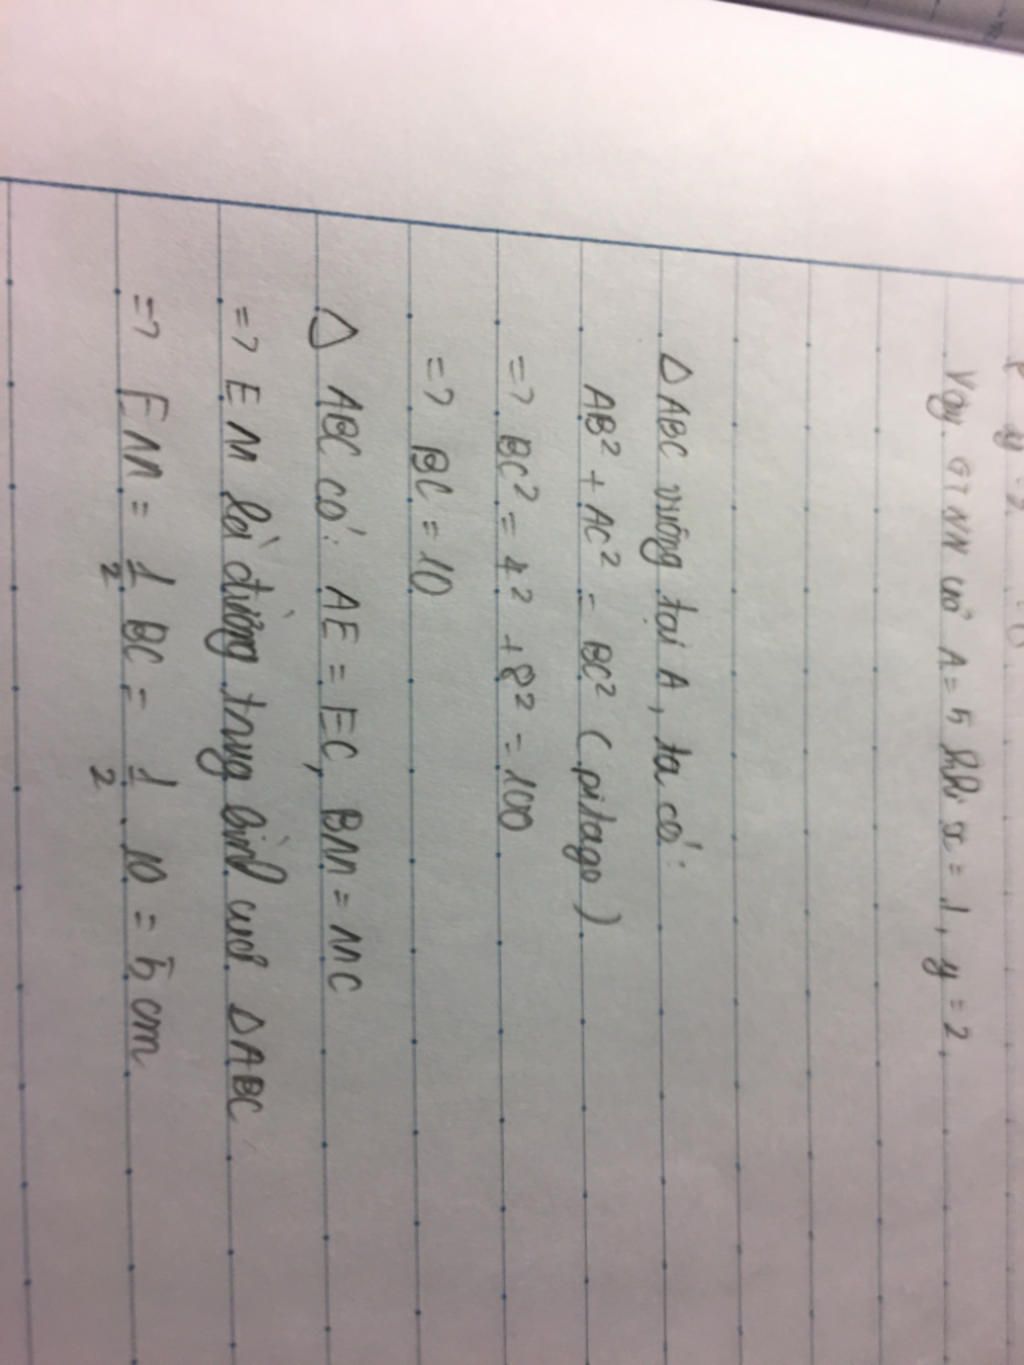 y = 2
Vậy GTNN của A = 5 khi x = 1, y = 2
Δ ABC vuông tại A, ta có:
AB² + AC² = BC² (pitago)
=> BC² = 4² + 8² = 100
=> BC = 10
Δ ABC có: AE = EC, BM = MC
=> EM là đường trung bình của Δ ABC
=> EM = 1/2 BC = 1/2 . 10 = 5 cm